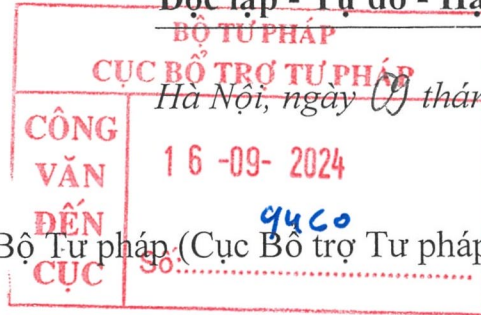 Độc lập - Tự do - Hạ
BỘ TƯ PHÁP
CỤC BỔ TRỢ TƯ PHÁP
Hà Nội, ngày 09 thán
CÔNG
VĂN
ĐẾN
CỤC
16 -09- 2024
Bộ Tư pháp (Cục Bổ trợ Tư pháp
Số: